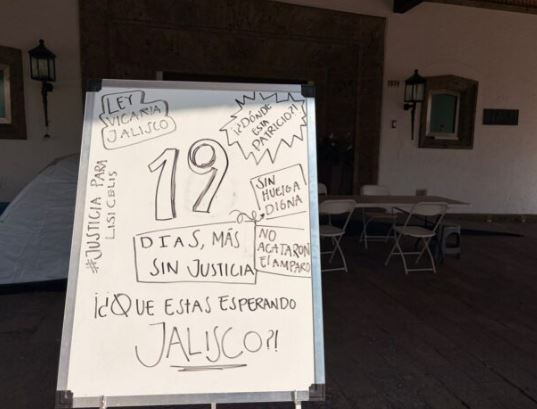 LEY
VICARIA
JALISCO
¡¿DÓNDE
ESTA
PATRICIO?!
#JUSTICIA PARA
LISICELIS
19
SIN
HUELGA
DIGNA
DIAS, MÁS
SIN JUSTICIA
NO
ACATARON
El AMPARO
¡¿QUE ESTAS ESPERANDO
JALISCO?!